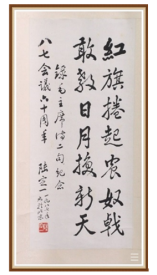 紅旗捲起農奴戟
敢教日月換新天
録毛主席诗二句纪念
八七会議六十周年
陆定一